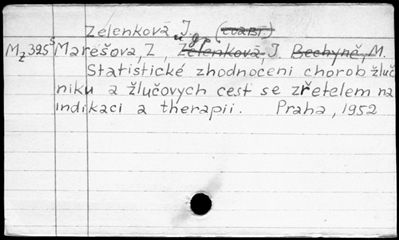 Zelenková J.
Mz 395 Marešova, Z, Zelenková, J. Bechyně, M.
Statistické zhodnoceni chorob žluč
niku a žlučových cest se zřetelem na
indikaci a therapii. Praha, 1952